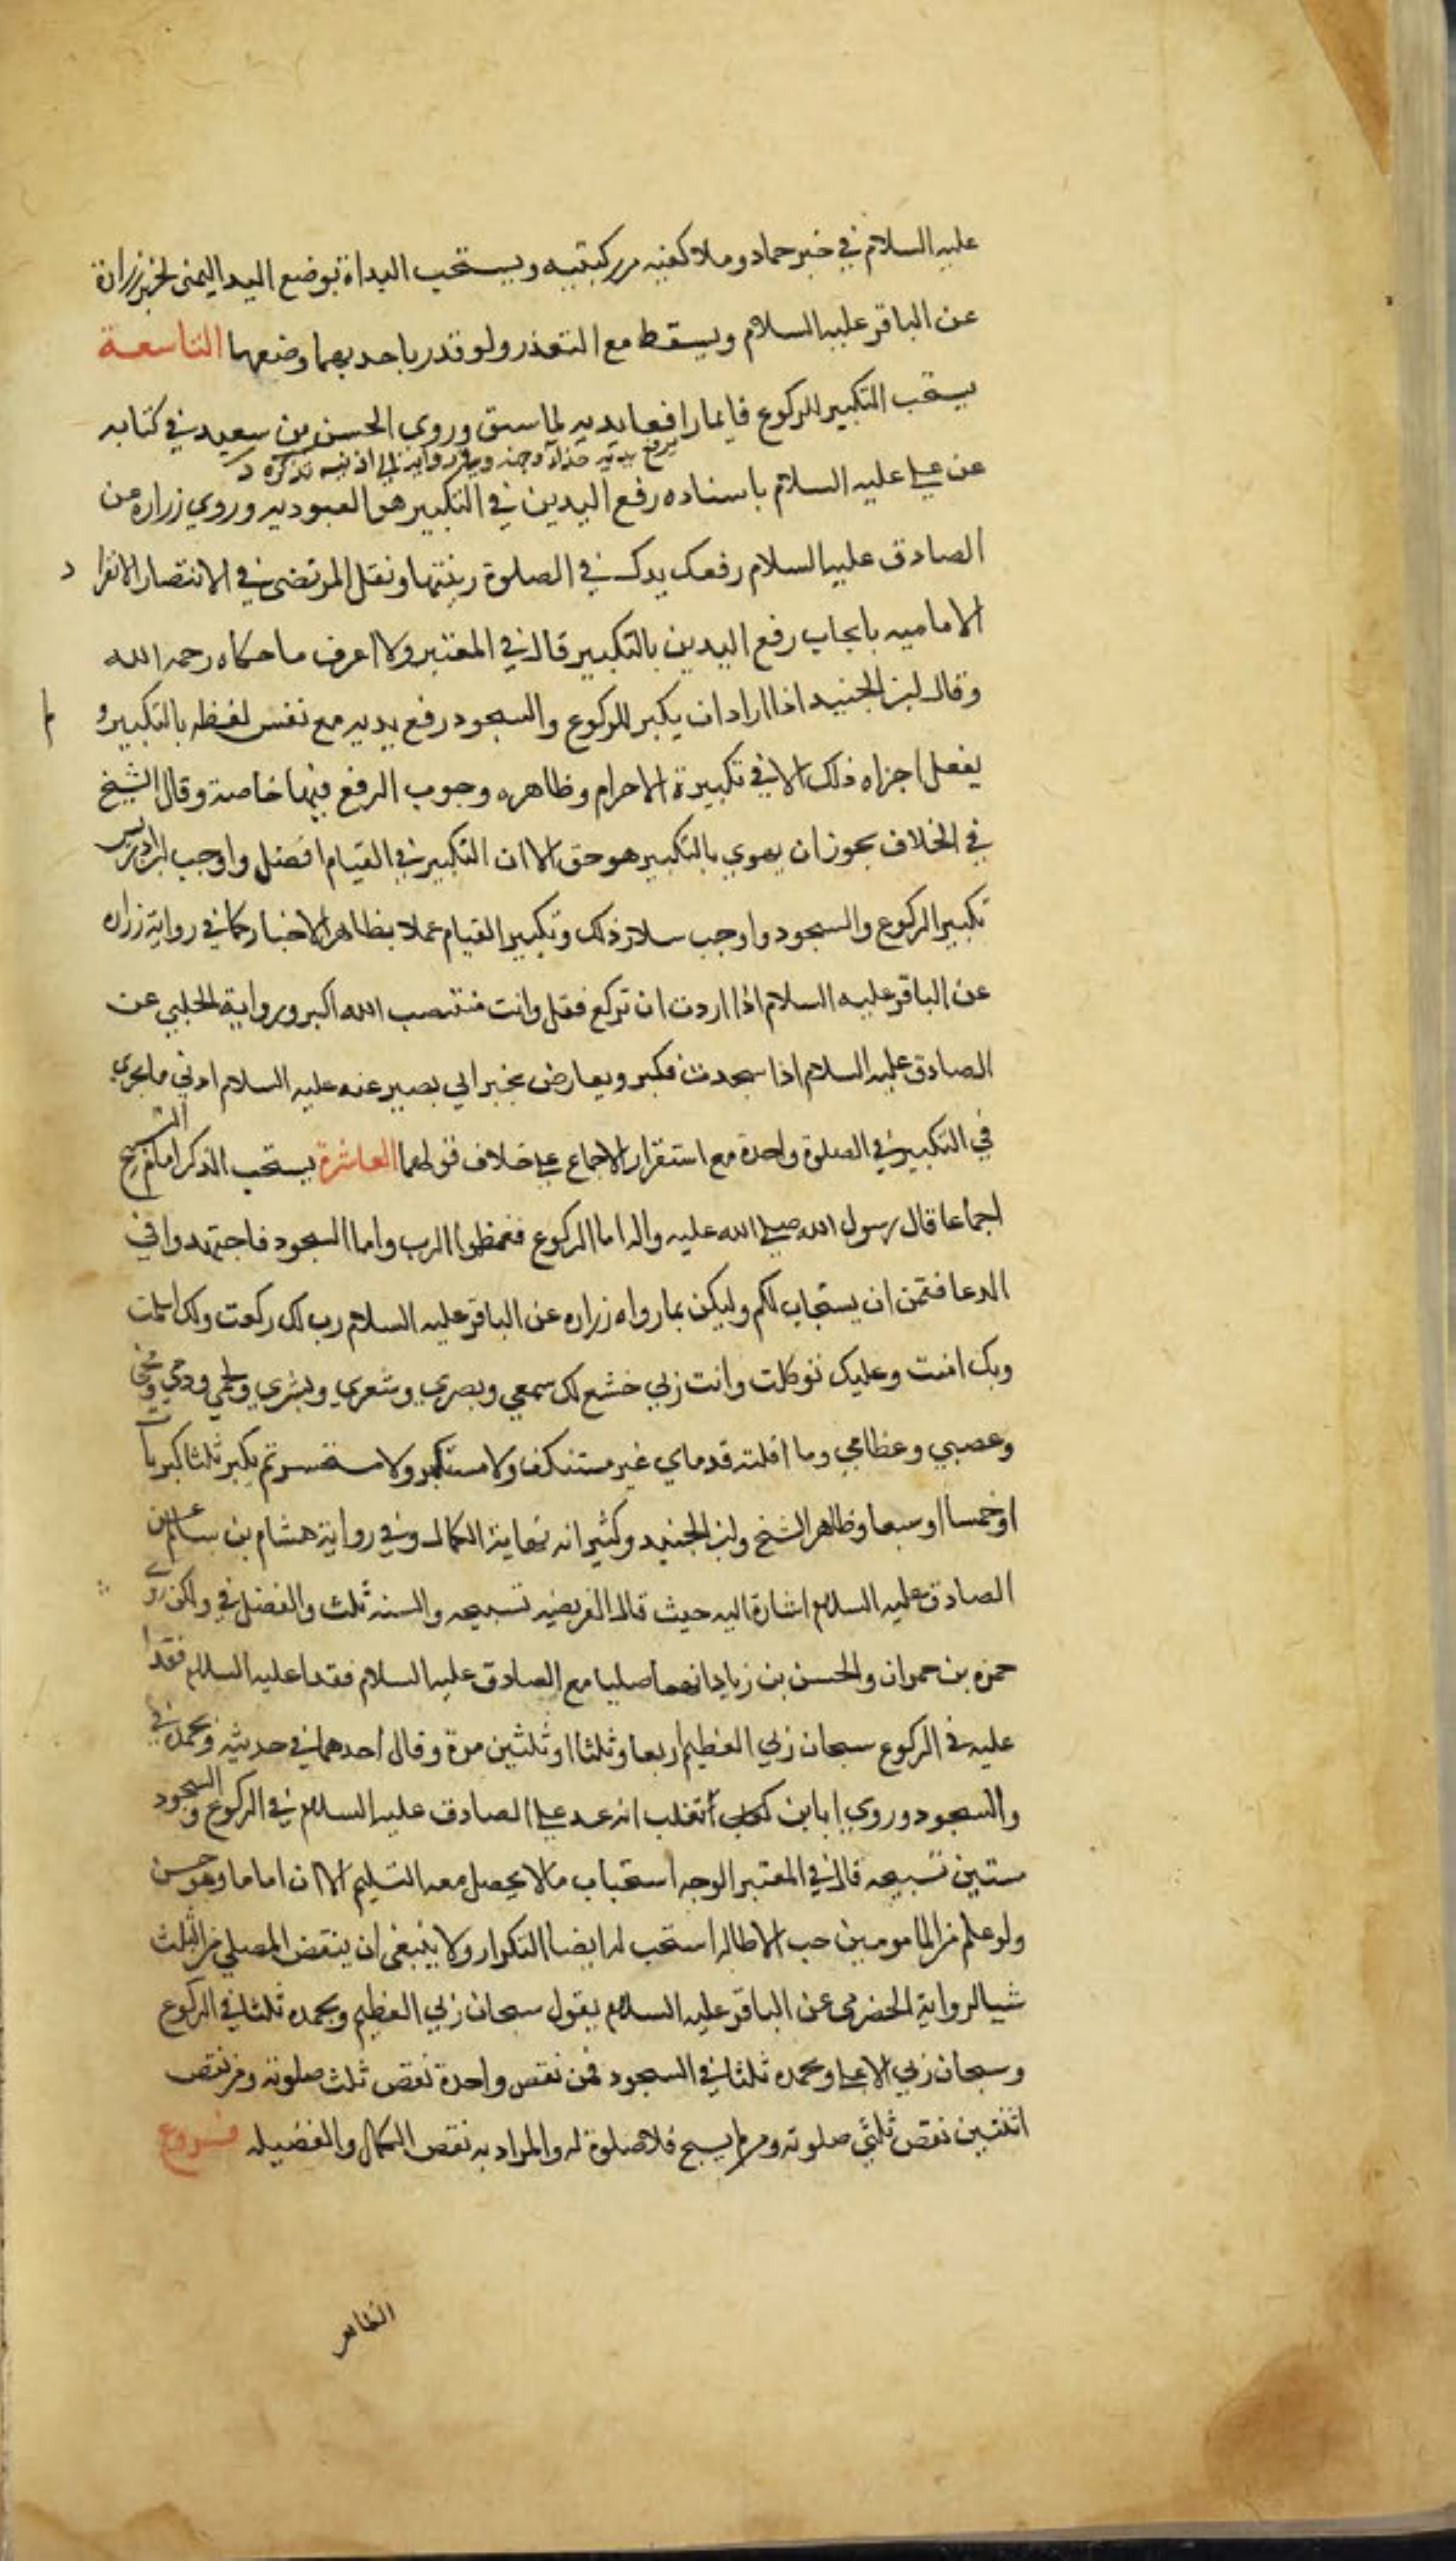 عليه السلام في خبر حماد وملا كفيه من ركبتيه ويستحب البداة بوضع اليد اليمنى لخبر زرارة
عن الباقر عليه السلام ويسقط مع التعذر ولو قدر باحديهما وضعها التاسعة
يستحب التكبير للركوع قايما رافعا يديه لما سبق وروى الحسن بن سعيد في كتابه
يرفع يديه حذاء وجهه وفي رواية الى اذنيه تذكره
عن علي عليه السلام باسناده رفع اليدين في التكبير هو العبوديه وروي زراره عن
الصادق عليه السلام رفعك يدك في الصلوة زينتها ونقل المرتضى في الانتصار الانفرا د
الاماميه بايجاب رفع اليدين بالتكبير قال في المعتبر ولا اعرف ما حكاه رحمه الله
وقال ابن الجنيد اذا اراد ان يكبر للركوع والسجود رفع يديه مع نفس لفظه بالتكبير و لم
يفعل اجزاه ذلك الا في تكبيرة الاحرام وظاهره وجوب الرفع فيها خاصة وقال الشيخ
في الخلاف يجوز ان يهوي بالتكبير هو حق الا ان التكبير في القيام افضل واوجب
تكبير الركوع والسجود واوجب سلار ذلك وتكبير القيام عملا بظاهر الاخبار كما في رواية زراره
عن الباقر عليه السلام اذا اردت ان تركع فقل وانت منتصب الله اكبر ورواية الحلبي عن
الصادق عليه السلام اذا سجدت فكبر ويعارض بخبر ابي بصير عنه عليه السلام ادنى ما يجزي
في التكبير في الصلوة واحدة مع استقرار الاجماع على خلاف قولهما العاشرة يستحب الذكر امام التسبيح
اجماعا قال رسول الله صلى الله عليه واله اما الركوع فعظموا الرب واما السجود فاجتهدوا في
الدعا فقمن ان يستجاب لكم وليكن بما رواه زراره عن الباقر عليه السلام رب لك ركعت ولك اسلمت
وبك امنت وعليك توكلت وانت ربي خشع لك سمعي وبصري وشعري وبشري ولحمي ودمي ومخي
وعصبي وعظامي وما اقلته قدماي غير مستنكف ولا مستكبر ولا مستحسر ثم يكبر ثلثا
اوخمسا او سبعا وظاهر الشيخ وابن الجنيد وكثير انه نهاية الكمال وفي رواية هشام بن سالم عن
الصادق عليه السلام اشارة اليه حيث قال الفريضه تسبيحه والسنه ثلث والفضل في ولكن روى
حمزه بن حمران والحسن بن زياد انهما صليا مع الصادق عليه السلام فعدا عليه السلام فعدا
عليه في الركوع سبحان ربي العظيم اربعا وثلثا او ثلثين مرة وقال احدهما في حديثه وبحمده في
والسجود وروى ابان بن تغلب انه عد على الصادق عليه السلام في الركوع والسجود
ستين تسبيحه قال في المعتبر الوجه استحباب ما لا يحصل معه التسليم الا ان اماما وهو حسن
ولو علم من المامومين حب الاطاله استحب له ايضا التكرار ولا ينبغي ان ينقض المصلي من الثلث
شيا لرواية الحضرمي عن الباقر عليه السلام يقول سبحان ربي العظيم وبحمده ثلثا في الركوع
وسبحان ربي الاعلى وبحمده ثلثا في السجود فمن نقص واحدة نقص ثلث صلوته ومن نقص
اثنتين نقص ثلثي صلوته ومن لم يسبح فلا صلوة له والمراد به نقص الكمال والفضيله فروع
الظاهر